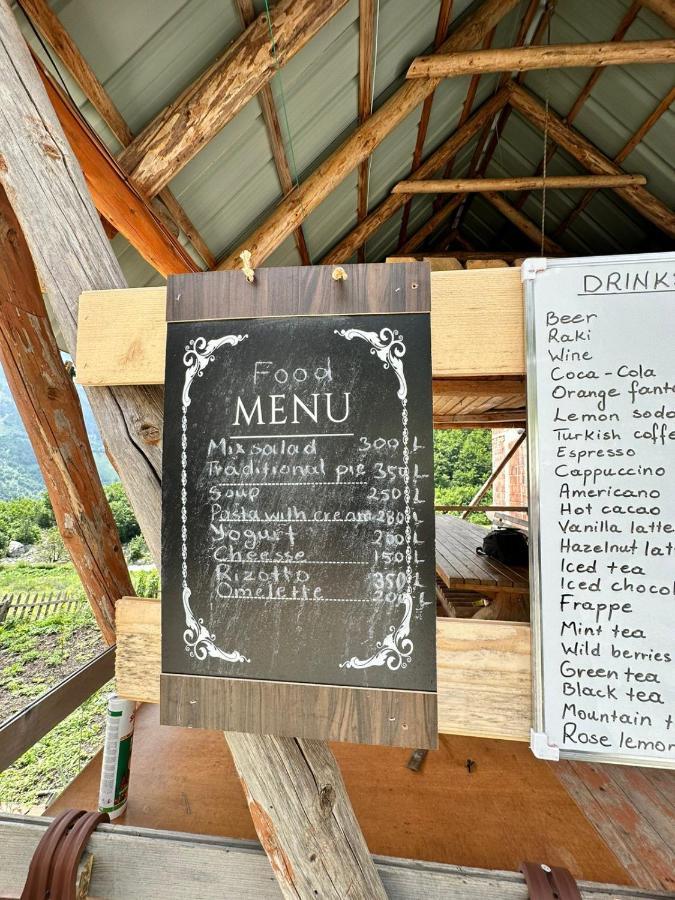 Food
MENU
Mix salad 300 L
Traditional pie 350 L
Soup 250 L
Pasta with cream 280 L
Yogurt 200 L
Cheesse 150 L
Rizotto 350 L
Omelette 200
DRINK
Beer
Raki
Wine
Coca-Cola
Orange fanta
Lemon soda
Turkish coffe
Espresso
Cappuccino
Americano
Hot cacao
Vanilla latte
Hazelnut lat
Iced tea
Iced chocol
Frappe
Mint tea
Wild berries
Green tea
Black tea
Mountain t
Rose lemon